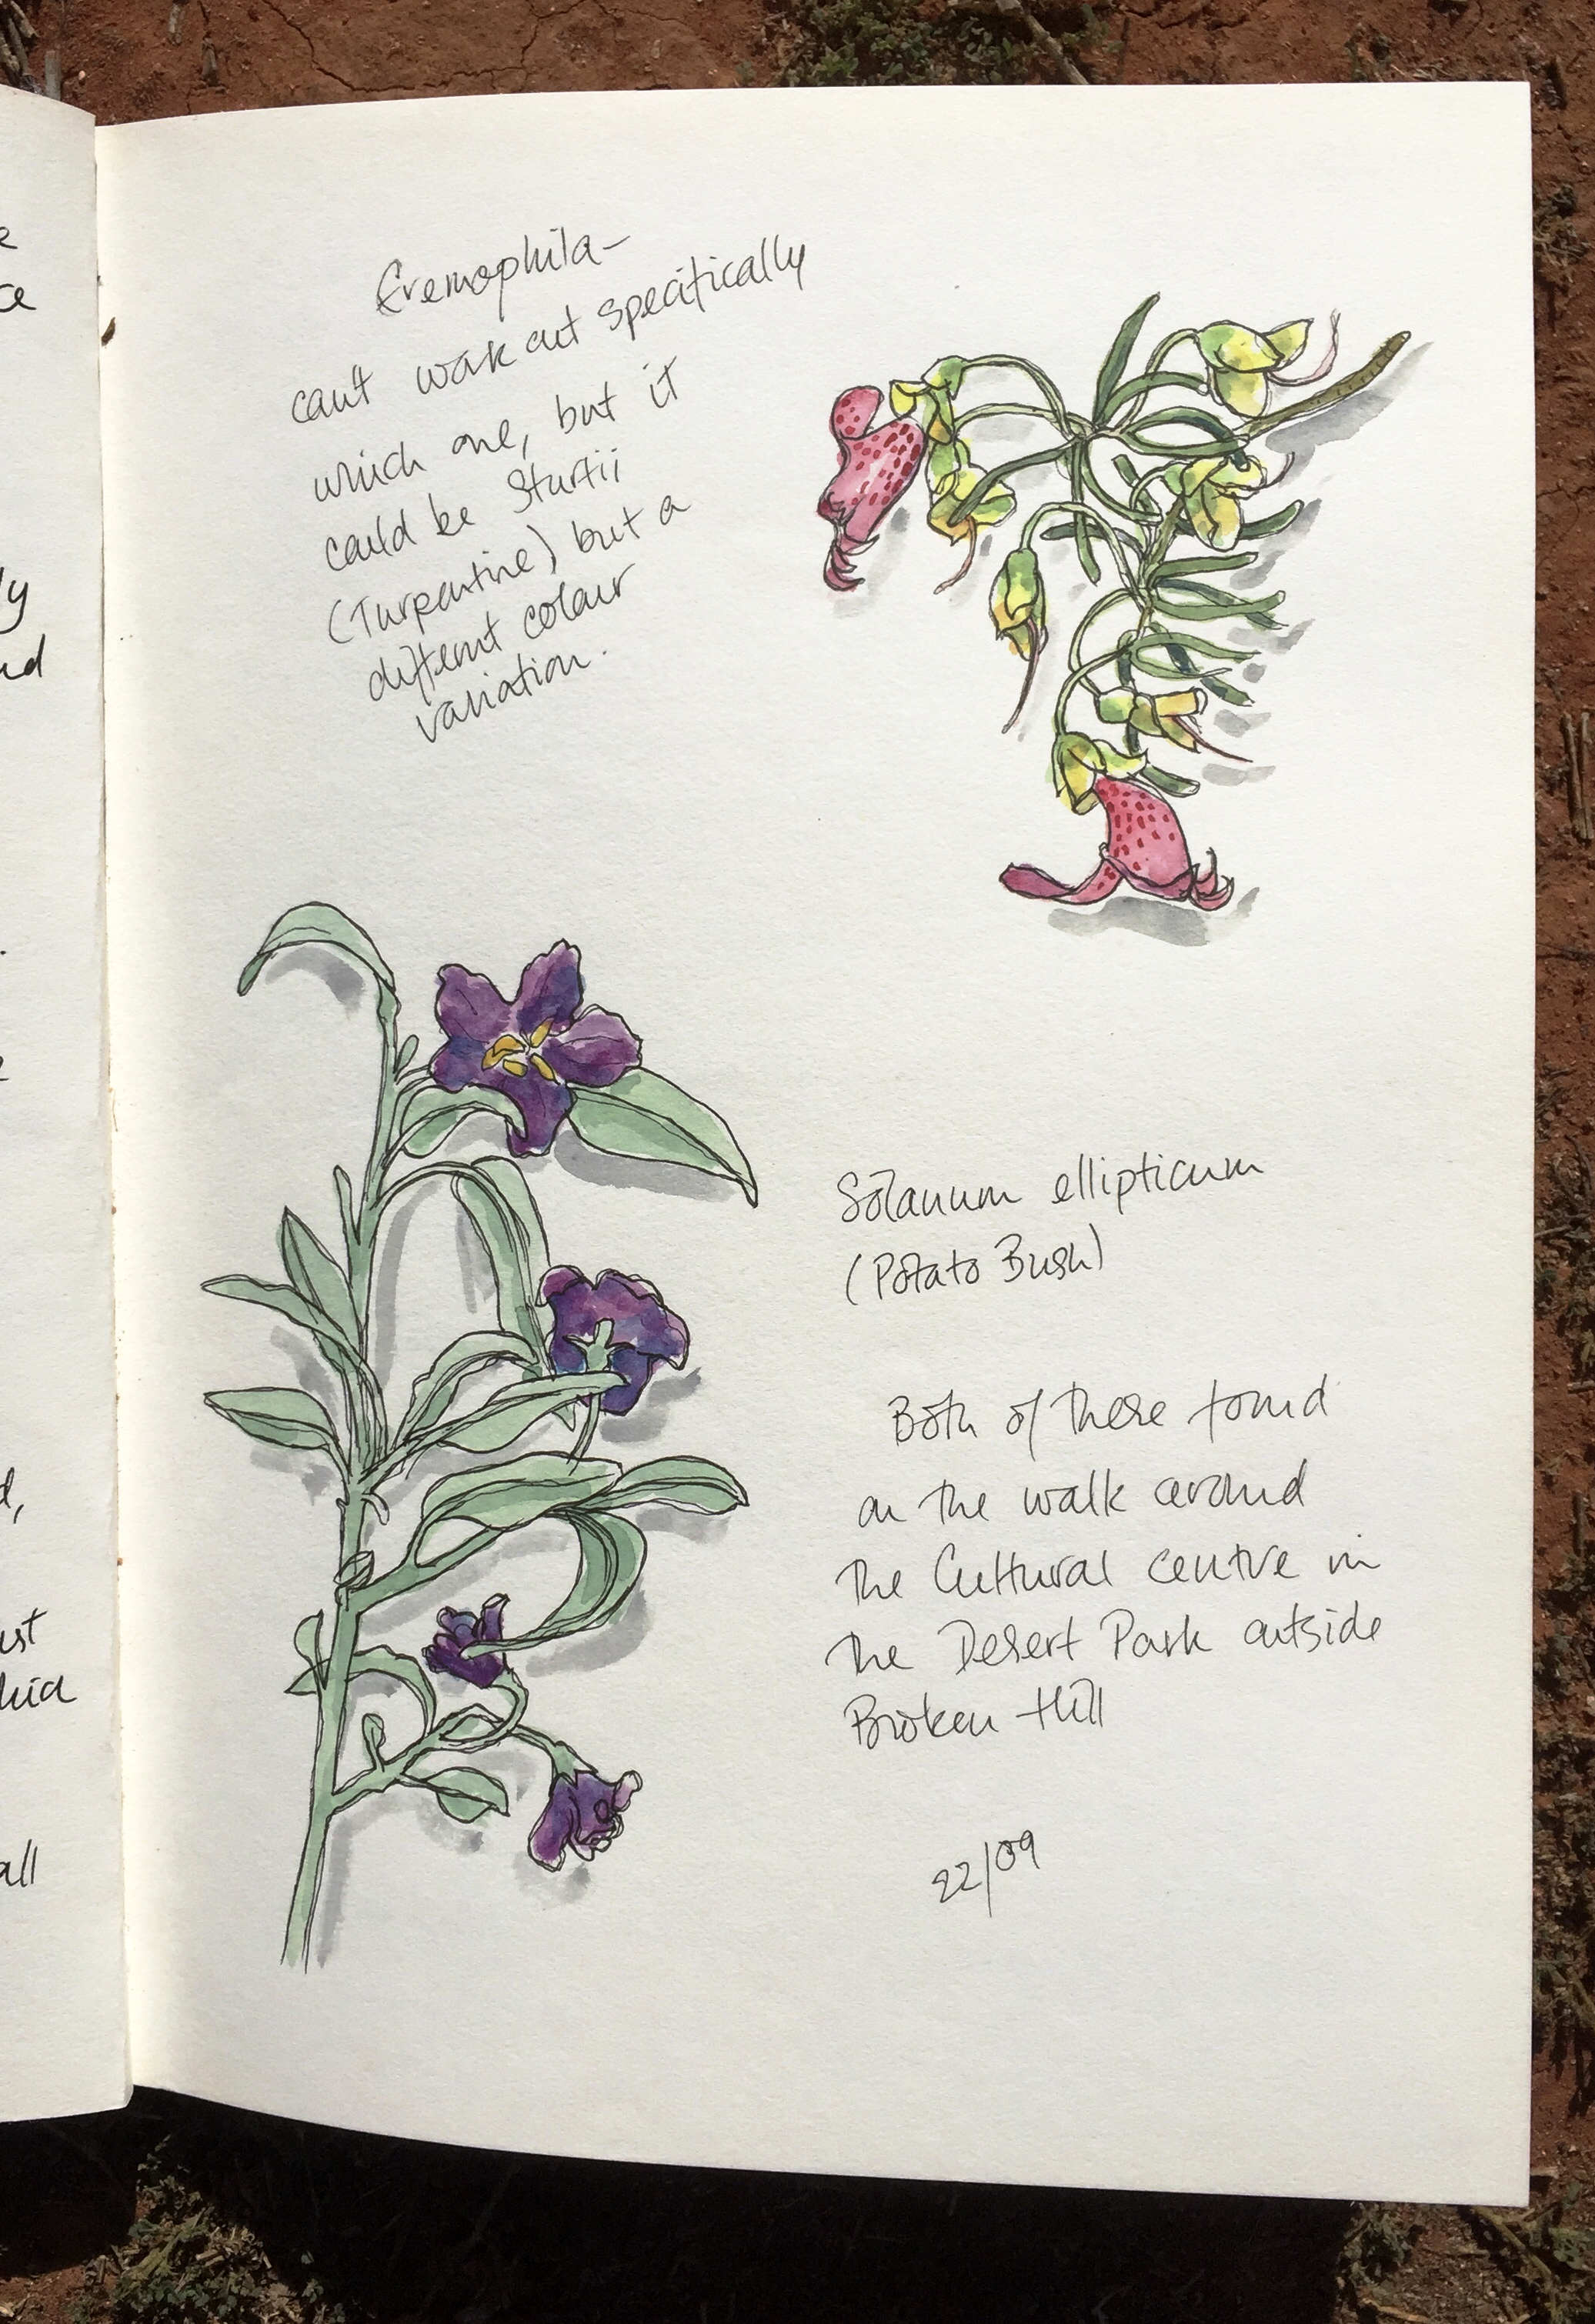 e
ce
ly
nd
d,
ust
hia
all
Eremophila–
can't work out specifically
which one, but it
could be Sturtii
(Turpentine) but a
different colour
variation.
Solanum ellipticum
(Potato Bush)
Both of these found
on the walk around
the Cultural centre in
the Desert Park outside
Broken Hill
22/09